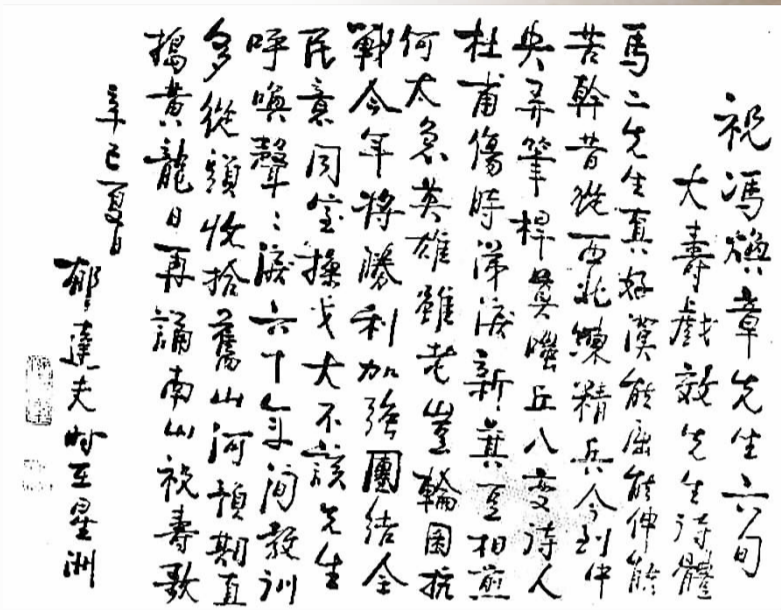 祝馮煥章先生六旬
大壽戲效先生詩體
馬二先生真好漢能屈能伸能
苦幹昔從西北練精兵今到中
央弄筆桿莫嗤丘八变詩人
杜甫傷時涕淚新萁豆相煎
何太急英雄雖老豈輪囷抗
戰今年將勝利加強團結全
民意同室操戈大不該先生
呼喚聲〻淚六十年間教訓
多從頭收拾舊山河預期直
搗黃龍日再誦南山祝壽歌
辛巳夏日
郁達夫時在星洲